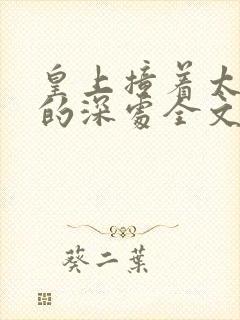 皇上撞着太
的深处全文
葵二葉